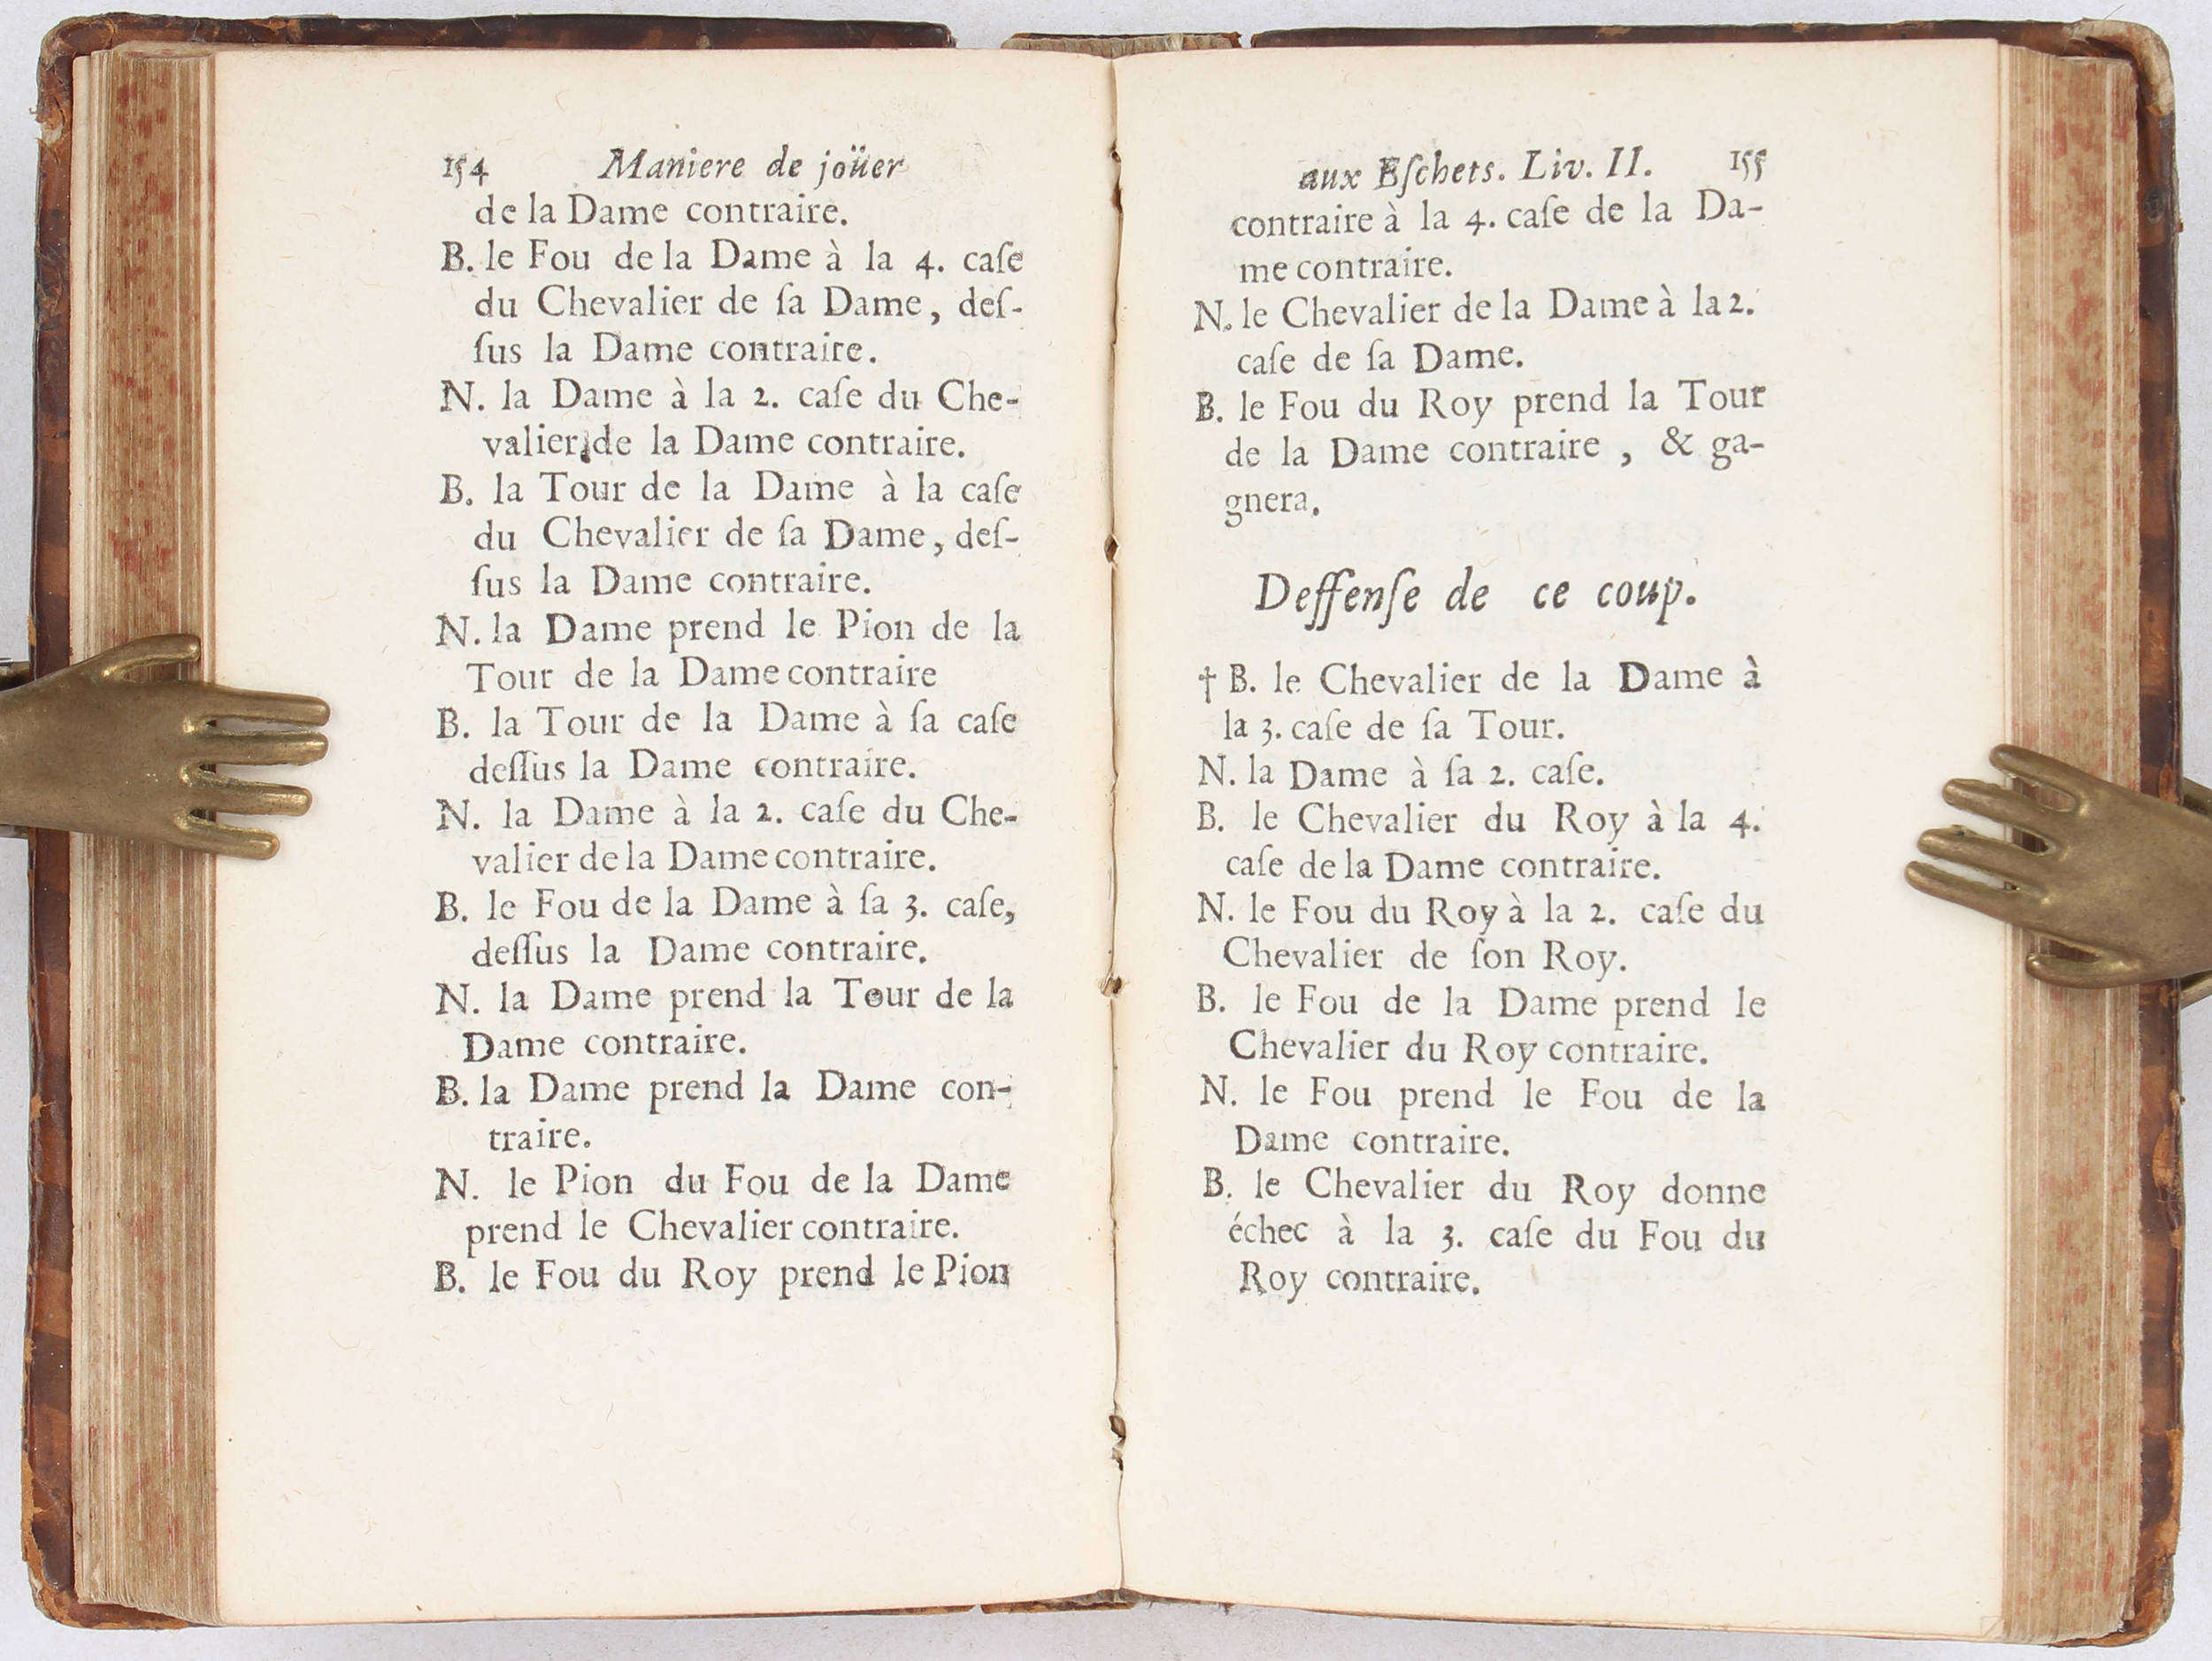 154 Maniere de joüer
de la Dame contraire.
B. le Fou de la Dame à la 4. caſe
du Chevalier de ſa Dame, deſ-
ſus la Dame contraire.
N. la Dame à la 2. caſe du Che-
valier de la Dame contraire.
B. la Tour de la Dame à la caſe
du Chevalier de ſa Dame, deſ-
ſus la Dame contraire.
N. la Dame prend le Pion de la
Tour de la Dame contraire
B. la Tour de la Dame à ſa caſe
deſſus la Dame contraire.
N. la Dame à la 2. caſe du Che-
valier de la Dame contraire.
B. le Fou de la Dame à ſa 3. caſe,
deſſus la Dame contraire.
N. la Dame prend la Tour de la
Dame contraire.
B. la Dame prend la Dame con-
traire.
N. le Pion du Fou de la Dame
prend le Chevalier contraire.
B. le Fou du Roy prend le Pion
aux Eſchets. Liv. II. 155
contraire à la 4. caſe de la Da-
me contraire.
N. le Chevalier de la Dame à la 2.
caſe de ſa Dame.
B. le Fou du Roy prend la Tour
de la Dame contraire, & ga-
gnera.
Deffenſe de ce coup.
† B. le Chevalier de la Dame à
la 3. caſe de ſa Tour.
N. la Dame à ſa 2. caſe.
B. le Chevalier du Roy à la 4.
caſe de la Dame contraire.
N. le Fou du Roy à la 2. caſe du
Chevalier de ſon Roy.
B. le Fou de la Dame prend le
Chevalier du Roy contraire.
N. le Fou prend le Fou de la
Dame contraire.
B. le Chevalier du Roy donne
échec à la 3. caſe du Fou du
Roy contraire.